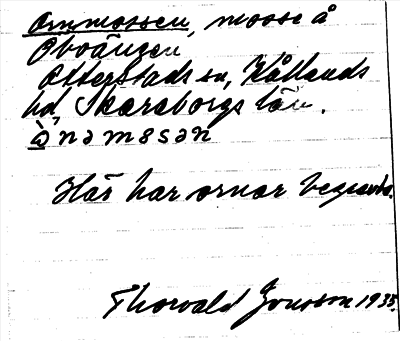 Ommossen, mosse å
Oboängen
Otterstads sn, Kållands
hd, Skaraborgs län.
ò̱nəmɞsən
Här har ornar begravts.
Thorvald Jonsson 1933.